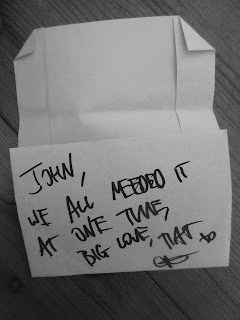 JOHN,
WE ALL NEEDED IT
AT ONE TIME,
BIG LOVE, TIAT xo